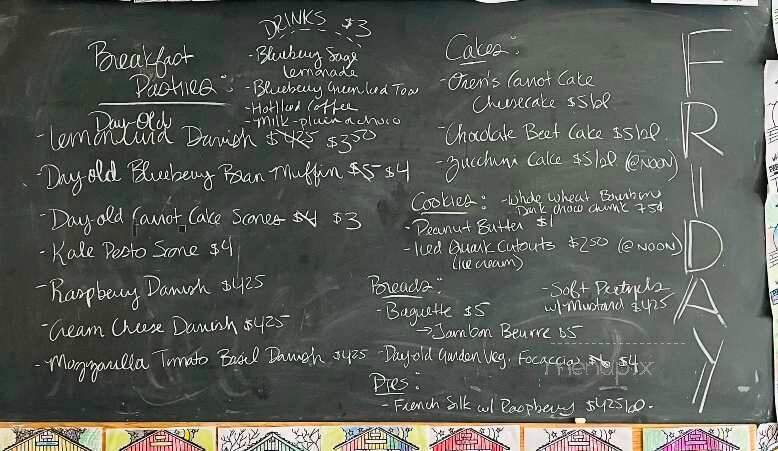 DRINKS $3
- Blueberry Sage
Lemonade
- Blueberry Green Iced Tea
- Hot/Iced Coffee
- Milk - plain & choco
Breakfast
Pastries:
Day-Old
- Lemon Curd Danish $425 $350
- Day-old Blueberry Bran Muffin $5 $4
- Day-old Carrot Cake Scones $4 $3
- Kale Pesto Scone $4
- Raspberry Danish $425
- Cream Cheese Danish $425
- Mozzarella Tomato Basil Danish $425
Cakes:
- Oren's Carrot Cake
Cheesecake $5/sl
- Chocolate Beet Cake $5/sl
- Zucchini Cake $5/sl (@NOON)
Cookies: - Whole Wheat Bourbon
Dark Choco Chunk 75¢
- Peanut Butter $1
- Iced Cutouts $250 (@NOON)
(ice cream)
Breads:
- Baguette $5
→ Jambon Beurre $5
- Soft Pretzels
w/ Mustard $425
- Day-old Garden Veg. Focaccias $4
Pies:
- French Silk w/ Raspberry $425/sl.
FRIDAY
menupix